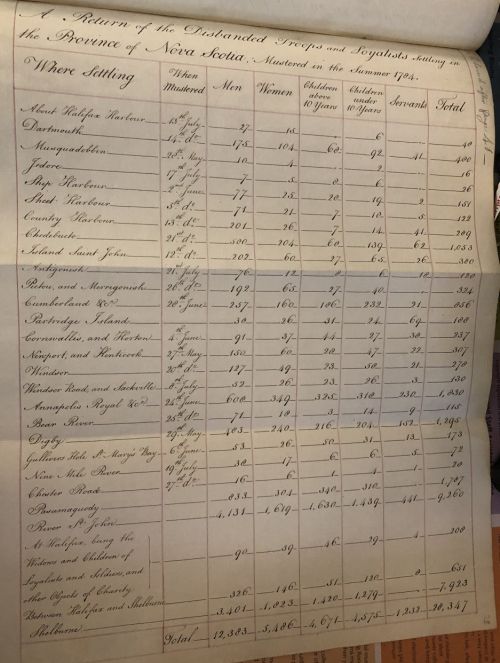 A Return of the Disbanded Troops and Loyalists Settling in
the Province of Nova Scotia, Mustered in the Summer 1784.
Where Settling When Mustered Men Women Children above 10 Years Children under 10 Years Servants Total
About Halifax Harbour 15th July 27 15 6 48
Dartmouth 14th do 175 104 68 92 41 480
Musquodobbin 28th May 10 4 2 16
Jedore 17th July 7 5 8 6 26
Ship Harbour 2nd June 77 25 28 19 2 151
Sheet Harbour 5th do 71 21 7 18 5 122
Country Harbour 13th do 201 26 7 14 41 289
Chedebucto 21st do 588 204 60 139 62 1,053
Island Saint John 12th do 202 60 27 65 26 380
Antigonish 21st July 76 12 8 6 18 120
Pictou, and Merrigomish 26th do 192 65 27 40 324
Cumberland &ca 28th June 257 160 186 232 21 856
Partridge Island 38 26 31 24 69 188
Cornwallis, and Horton 4th June 91 37 44 27 38 237
Newport, and Kenticook 27th May 150 60 28 47 22 307
Windsor 20th do 127 49 23 58 21 278
Windsor Road, and Sackville 8th July 52 26 23 26 3 130
Annapolis Royal &ca 24th June 608 349 325 318 230 1,830
Bear River 25th do 71 18 3 14 9 115
Digby 29th May 483 240 216 204 152 1,295
Gullivers Hole St. Mary's Bay 6th June 53 26 50 31 13 173
Nine Mile River 19th July 38 17 6 6 5 72
Chester Road 27th do 16 6 1 4 1 28
Passamaquody 833 304 340 310 1,787
River St. John 4,131 1,619 1,630 1,439 441 9,260
At Halifax, being the
Widows and Children of
Loyalists and Soldiers, and
other Objects of Charity 90 39 46 29 4 208
Between Halifax and Shelburne 326 146 51 120 8 651
Shelburne 3,401 1,823 1,420 1,279 7,923
Total 12,383 5,486 4,671 4,575 1,232 28,347